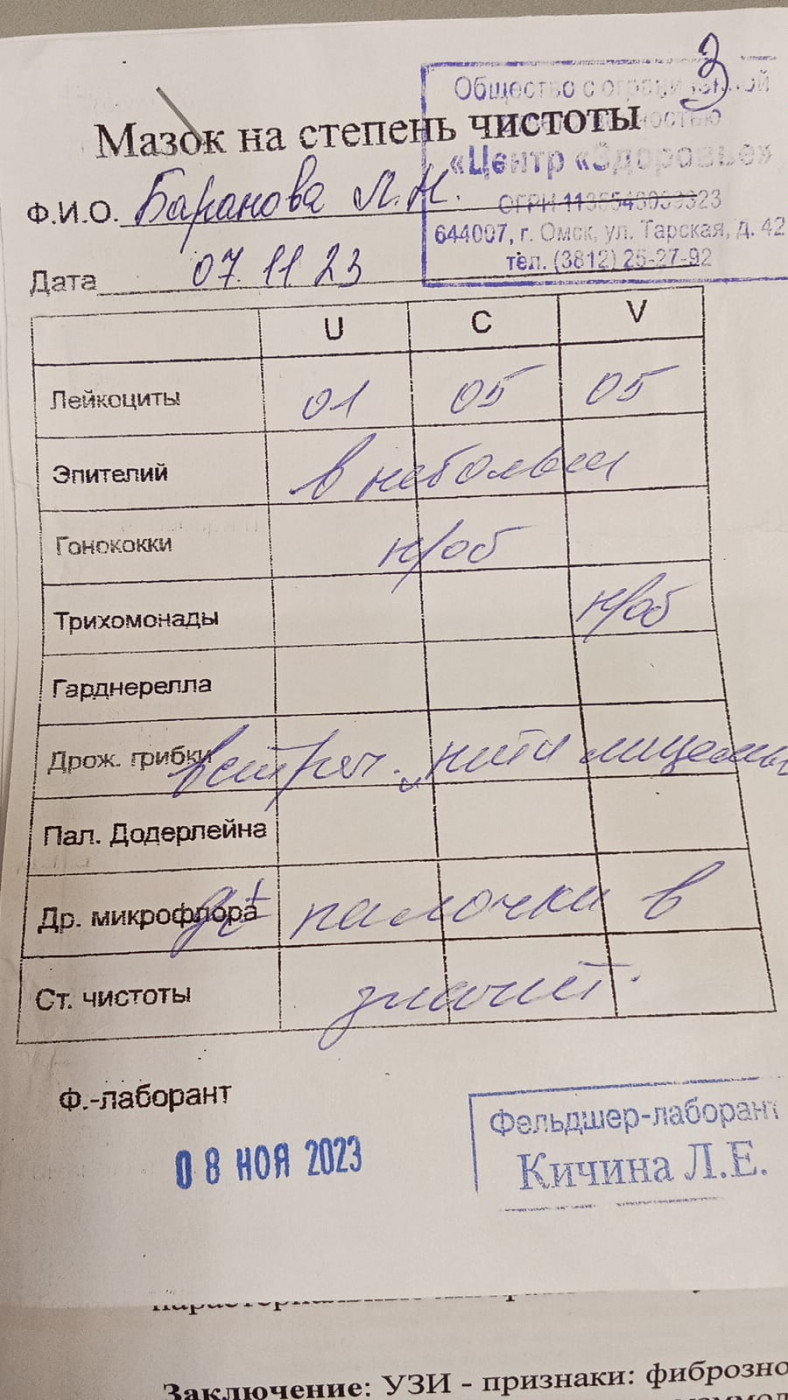 3
Общество с ограниченной
ответственностью
«Центр «Здоровье»
Мазок на степень чистоты
ОГРН
644007, г. Омск, ул. Тарская, д. 42
тел. (3812) 25-27-92
Ф.И.О. Баранова Л.Н.
Дата 07.11 23
U C V
Лейкоциты 01 05 05
Эпителий в небольш
Гонококки н/об
Трихомонады н/об
Гарднерелла
Дрож. грибки встреч. нити мицелия
Пал. Додерлейна
Др. микрофлора палочки в
Ст. чистоты значит.
Ф.-лаборант
08 НОЯ 2023
Фельдшер-лаборант
Кичина Л.Е.
Заключение: УЗИ - признаки: фиброзно